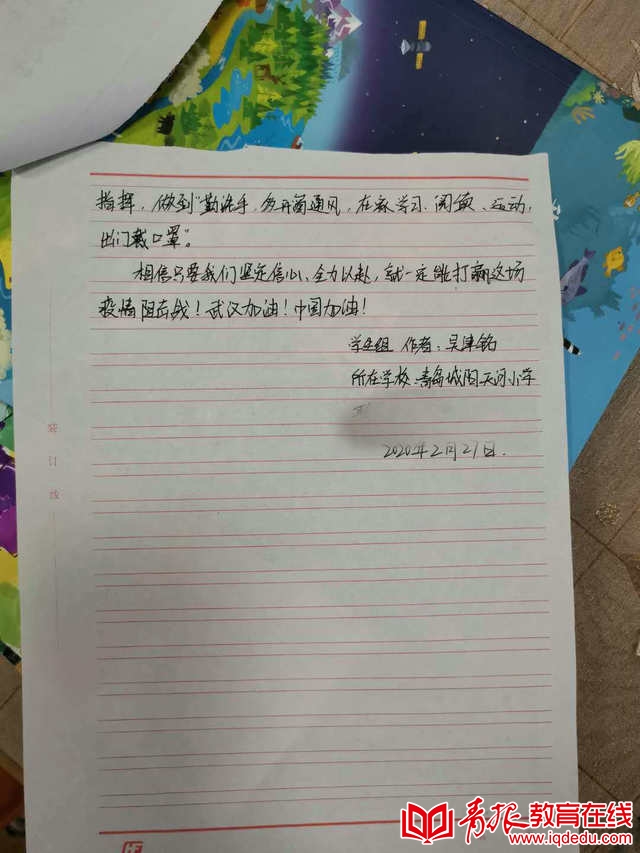 指挥，做到“勤洗手，多开窗通风，在家学习、阅读、运动，
出门戴口罩”。
相信只要我们坚定信心、全力以赴，就一定能打赢这场
疫情阻击战！武汉加油！中国加油！
学生组 作者：吴津铭
所在学校：青岛城阳天河小学
2020年2月27日.
装
订
线
青报教育在线
www.iqdedu.com